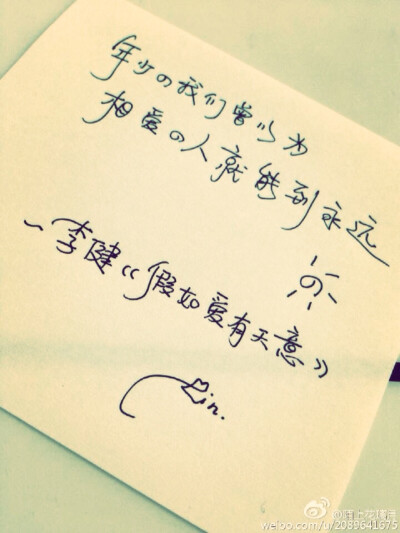 年少の我们曾以为
相爱の人就能到永远
~李健《假如爱有天意》
Lin.
@陌上花开
weibo.com/u/2089641675